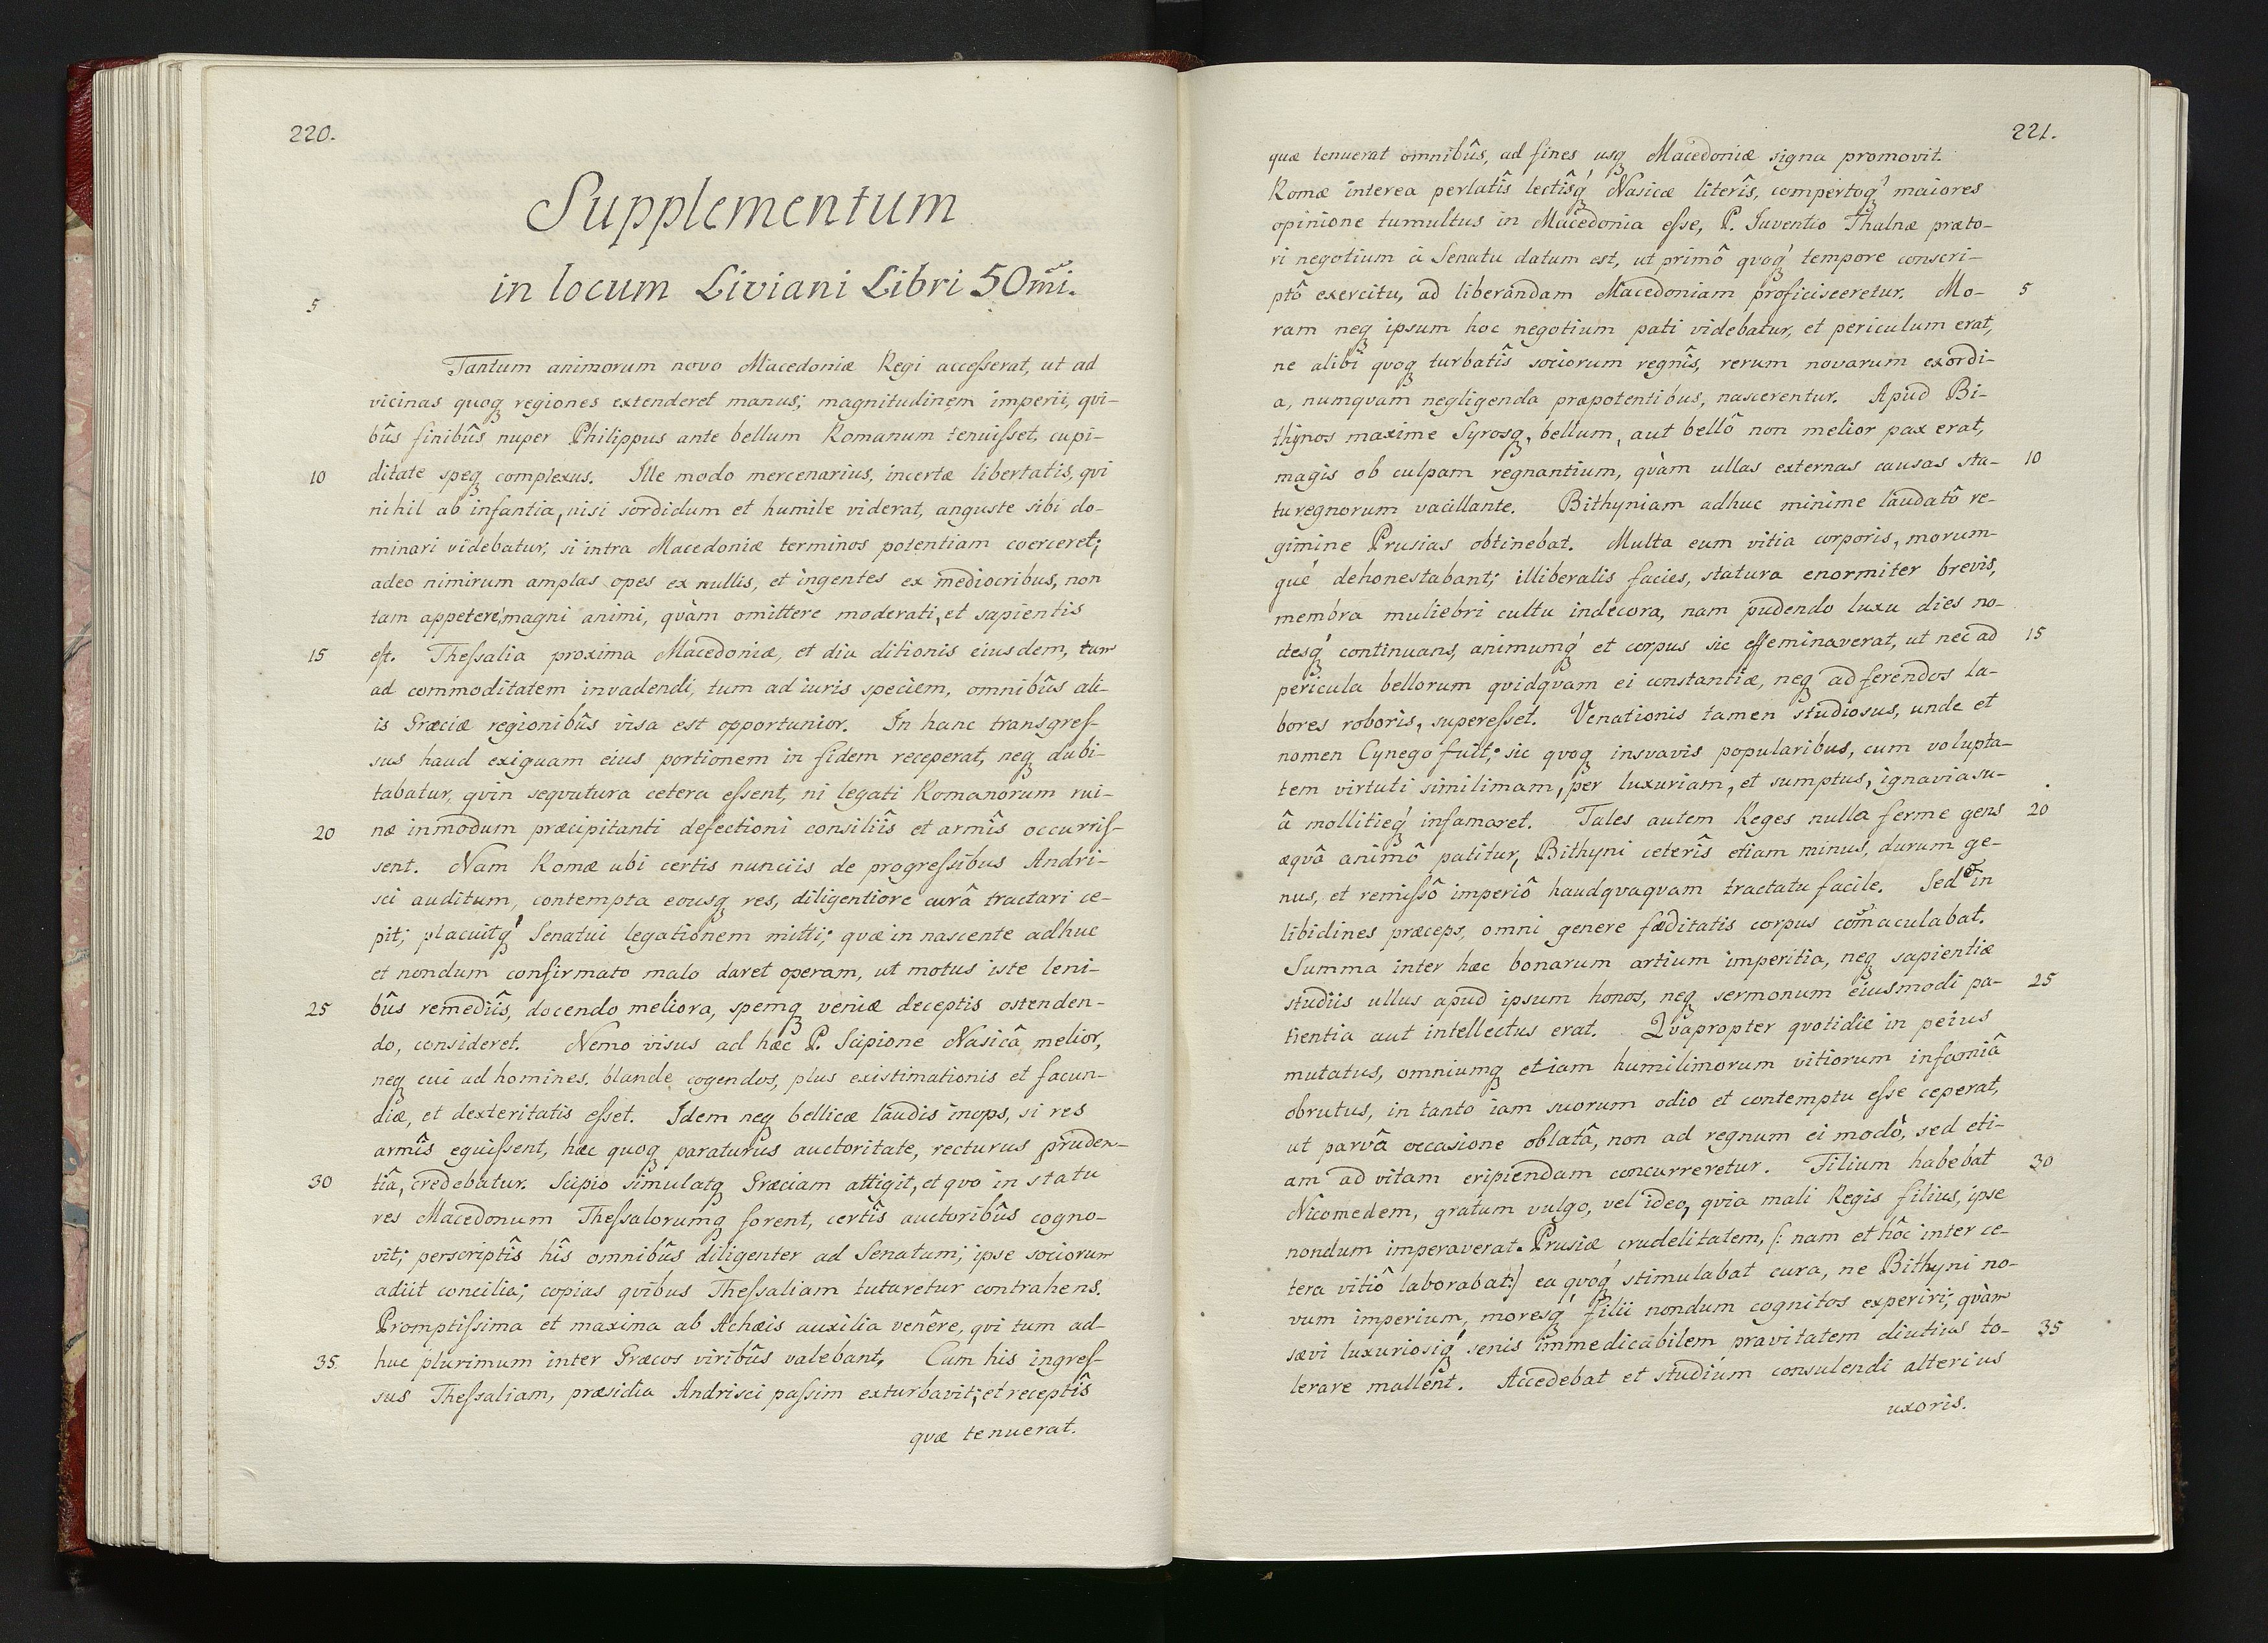 220.
Supplementum
in locum Liviani Libri 50mi.
5
Tantum animorum novo Macedoniæ Regi accesserat, ut ad
vicinas quoq regiones extenderet manus; magnitudinem imperii, qvi-
bûs finibûs nuper Philippus ante bellum Romanum tenuisset, cupi-
10 ditate speq complexus. Ille modo mercenarius, incertæ libertatis, qvi
nihil ab infantia, nisi sordidum et humile viderat, anguste sibi do-
minari videbatur, si intra Macedoniæ terminos potentiam coerceret;
adeo nimirum amplas opes ex nullis, et ingentes ex mediocribus, non
tam appetere, magni animi, qvàm omittere moderati, et sapientis
15 est. Thessalia proxima Macedoniæ, et diu ditionis eiusdem, tum
ad commoditatem invadendi, tum ad iuris speciem, omnibûs ali-
is Græciæ regionibûs visa est opportunior. In hanc transgres-
sus haud exiguam eius portionem in fidem receperat, neq dubi-
tabatur, qvin seqvutura cetera essent, ni legati Romanorum rui-
20 næ inmodum præcipitanti defectioni consiliîs et armîs occurris-
sent. Nam Romæ ubi certis nunciis de progressibus Andri-
sci auditum, contempta eousq res, diligentiore curâ tractari ce-
pit; placuitq́ Senatui legationem mitti; quæ in nascente adhuc
et nondum confirmato malo daret operam, ut motus iste leni-
25 bûs remediîs, docendo meliora, spemq veniæ deceptis ostenden-
do, consideret. Nemo visus ad hæc P. Scipione Nasicâ melior,
neq cui ad homines. blande cogendos, plus existimationis et facun-
diæ, et dexteritatis esset. Idem neq bellicæ laudis inops, si res
armîs eguissent, hæc quoq paraturus auctoritate, recturus pruden-
30 tiâ, credebatur. Scipio simulatq Græciam attigit, et qvo in statu
res Macedonum Thessalorumq forent, certîs auctoribûs cogno-
vit; perscriptîs hîs omnibûs diligenter ad Senatum; ipse sociorum
adiit concilia; copias qvibus Thessaliam tutaretur contrahens.
Promptissima et maxima ab Achæis auxilia venêre, qvi tum ad-
35 huc plurimum inter Græcos viribûs valebant, Cum his ingres-
sus Thessaliam, præsidia Andrisci passim exturbavit; et receptîs
qvæ tenuerat.
221.
quæ tenuerat omnibûs, ad fines usq Macedoniæ signa promovit.
Romæ interea perlatîs lectîsq́ Nasicæ literîs, compertoq́ maiores
opinione tumultus in Macedonia esse, P. Iuventio Thalnæ præto-
ri negotium à Senatu datum est, ut primô qvoq́ tempore conscri-
ptô exercitu, ad liberandam Macedoniam proficisceretur. Mo- 5
ram neq ipsum hoc negotium pati videbatur, et periculum erat,
ne alibi qvoq turbatîs sociorum regnîs, rerum novarum exordi-
a, numqvam negligenda præpotentibus, nascerentur. Apud Bi-
thynos maxime Syrosq, bellum, aut bellô non melior pax erat,
magis ob culpam regnantium, qvàm ullas externas causas sta- 10
tu regnorum vacillante. Bithyniam adhuc minime laudatô re-
gimine Prusias obtinebat. Multa eum vitia corporis, morum-
que dehonestabant; illiberalis facies, statura enormiter brevis,
membra muliebri cultu indecora, nam pudendo luxu dies no-
ctesq́ continuans, animumq́ et corpus sic effeminaverat, ut nec ad 15
pericula bellorum qvidqvam ei constantiæ, neq ad ferendos la-
bores roboris, superesset. Venationis tamen studiosus, unde et
nomen Cynego fuit; sic qvoq insvavis popularibus, cum volupta-
tem virtuti similimam, per luxuriam, et sumptus, ignavia su-
â mollitieq́ infamaret. Tales autem Reges nulla ferme gens 20
æqvô animô patitur, Bithyni ceterîs etiam minus, durum ge-
nus, et remissô imperiô haudqvaqvam tractatu facile. Sed et in
libidines præceps, omni genere fœditatis corpus com̃aculabat.
Summa inter hæc bonarum artium imperitia, neq sapientiæ
studiis ullus apud ipsum honos, neq sermonum eiusmodi pa- 25
tientia aut intellectus erat. Qvapropter qvotidie in peius
mutatus, omniumq etiam humilimorum vitiorum infamiâ
obrutus, in tanto iam suorum odio et contemptu esse ceperat,
ut parvâ occasione oblatâ, non ad regnum ei modò, sed eti-
am ad vitam eripiendam concurreretur. Filium habebat 30
Nicomedem, gratum vulgo, vel ideo, qvia mali Regis filius, ipse
nondum imperaverat. Prusiæ crudelitatem, /: nam et hôc inter ce-
tera vitiô laborabat:/ ea qvoq́ stimulabat cura, ne Bithyni no-
vum imperium, moresq́ filii nondum cognitos experiri; qvàm
sævi luxuriosiq́ senis immedicabilem pravitatem diutius to- 35
lerare mallent. Accedebat et studium consulendi alterius
uxoris.